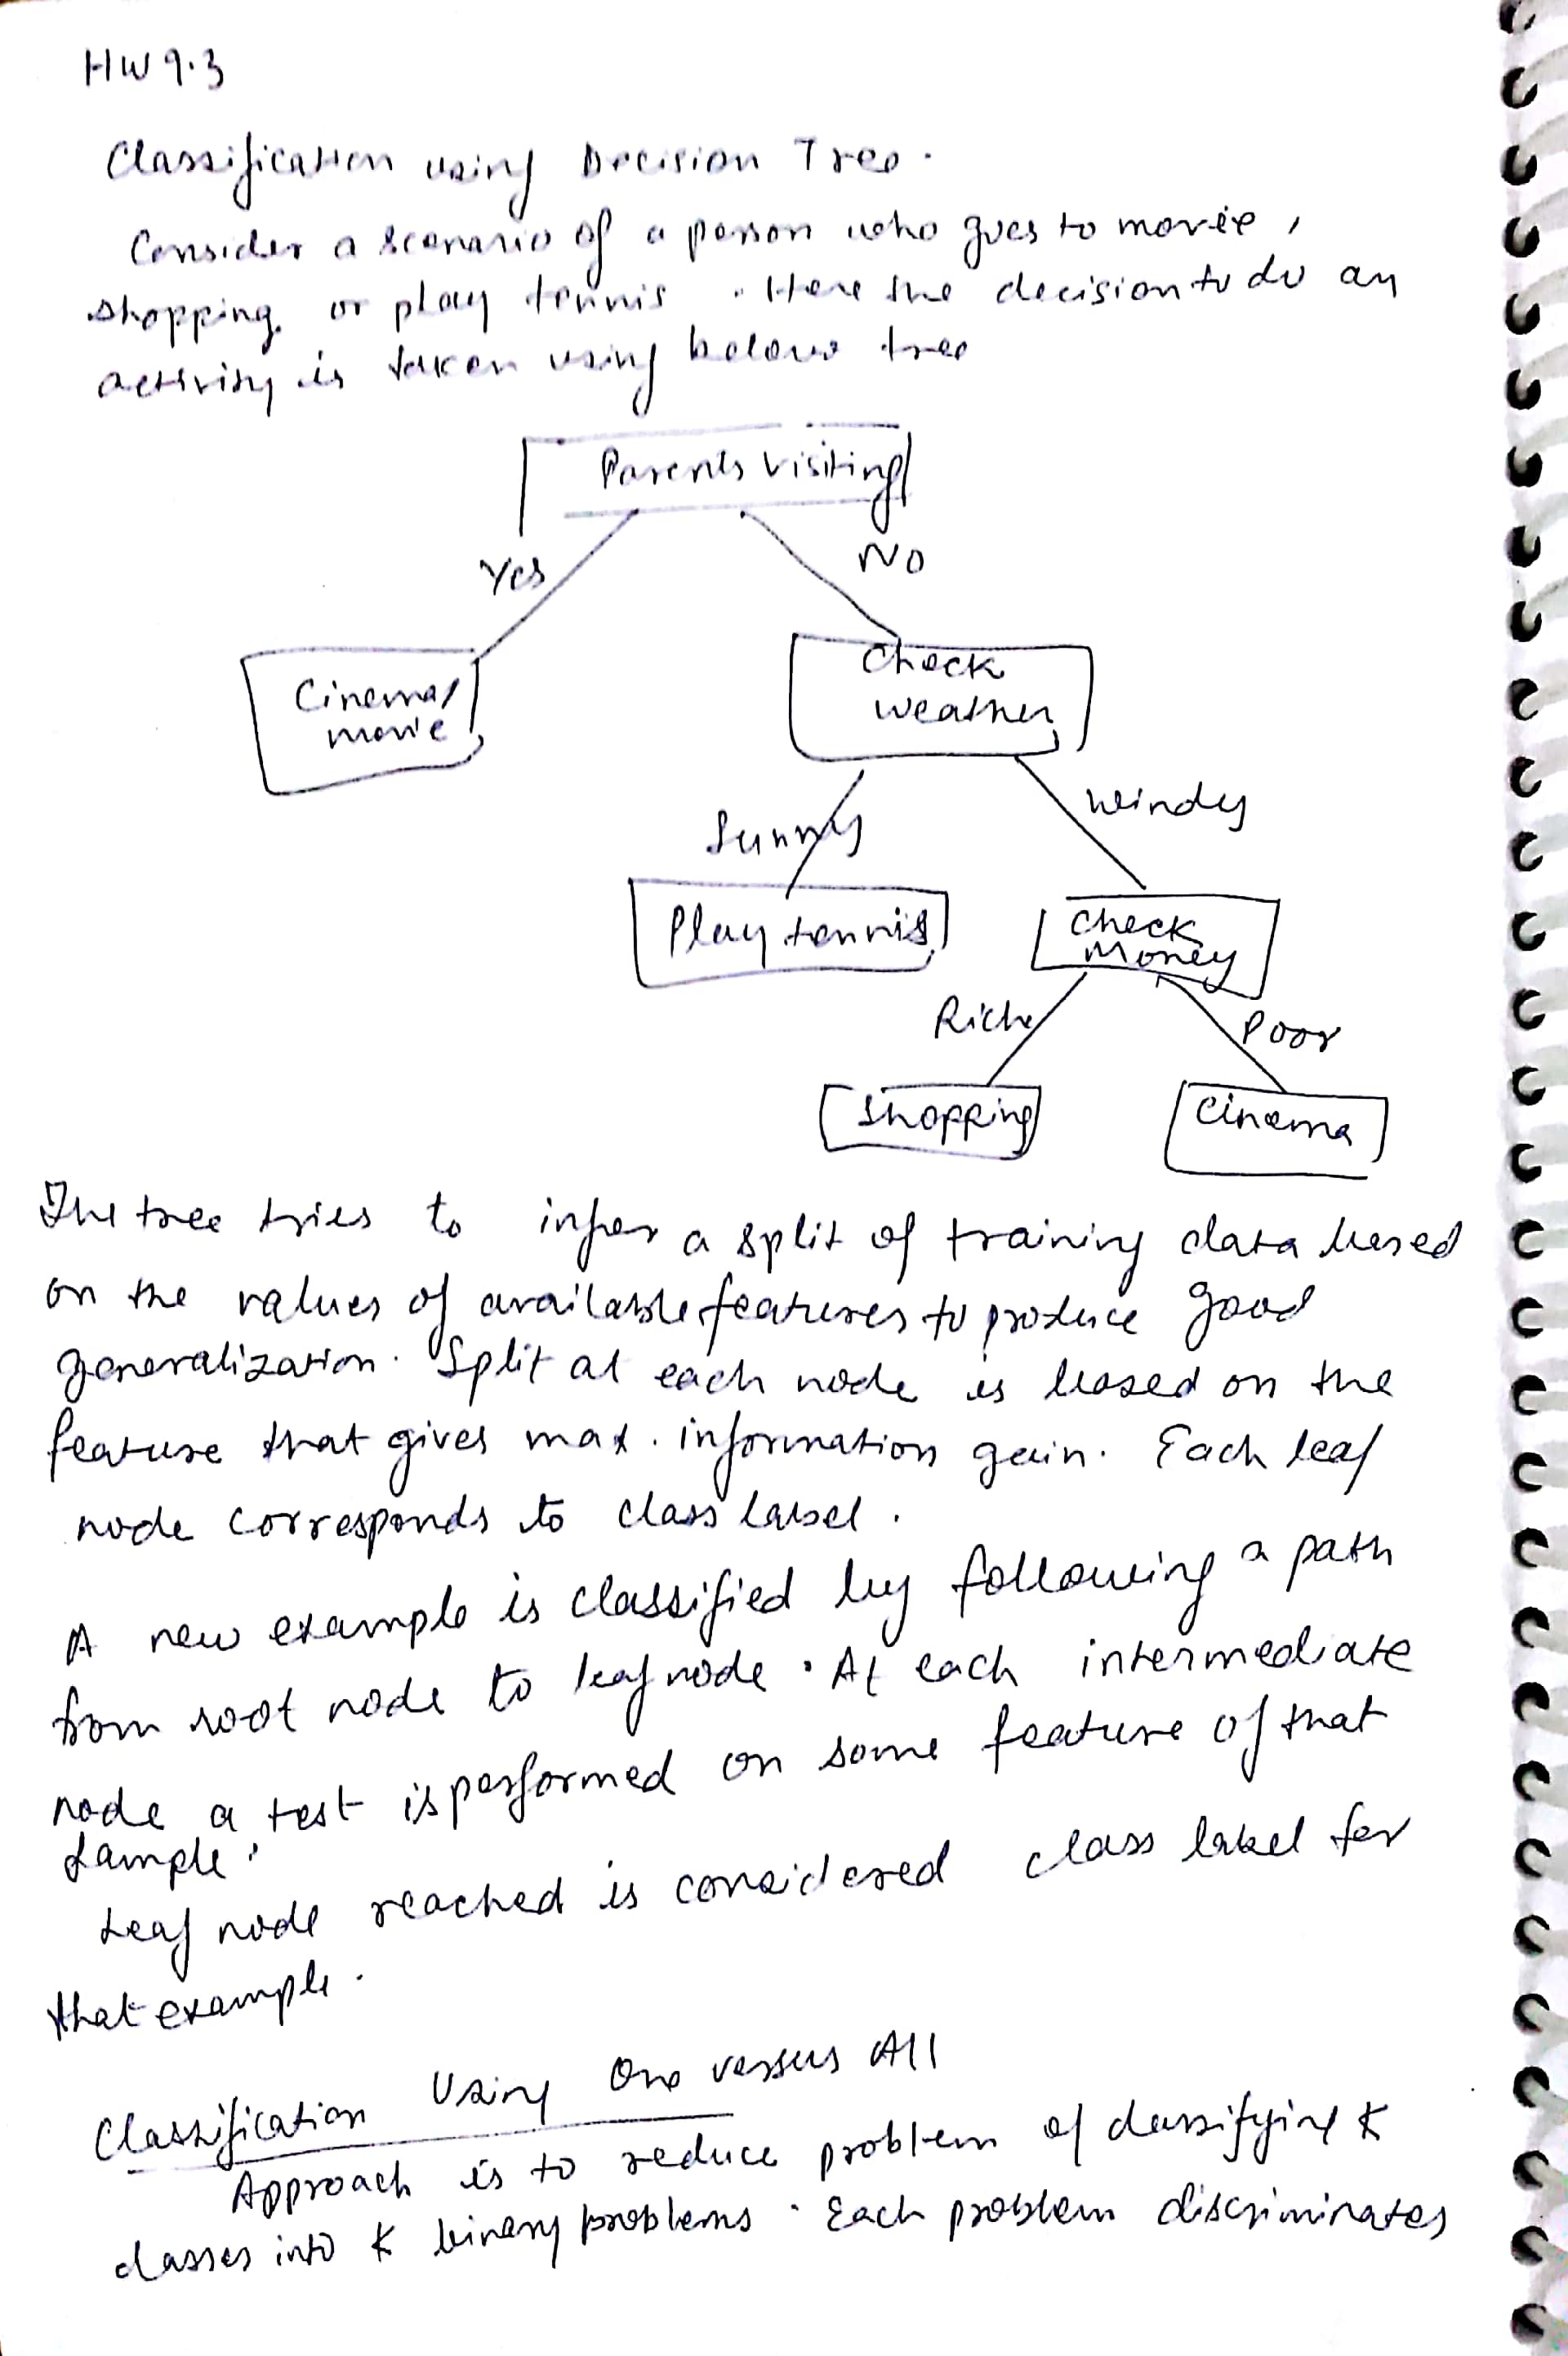 HW 9.3
Classification using Decision Tree.
Consider a scenario of a person who goes to movie,
shopping or play tennis. Here the decision to do an
activity is taken using below tree
Parents Visiting
Yes
No
Cinema/
movie
Check
weather
Sunny
Windy
Play tennis
Check
Money
Rich
Poor
Shopping
Cinema
The tree tries to infer a split of training data based
on the values of available features to produce good
generalization. Split at each node is based on the
feature that gives max. information gain. Each leaf
node corresponds to class label.
A new example is classified by following a path
from root node to leaf node. At each intermediate
node a test is performed on some feature of that
sample.
Leaf node reached is considered class label for
that example.
Classification Using One versus All
Approach is to reduce problem of classifying K
classes into K binary problems. Each problem discriminates